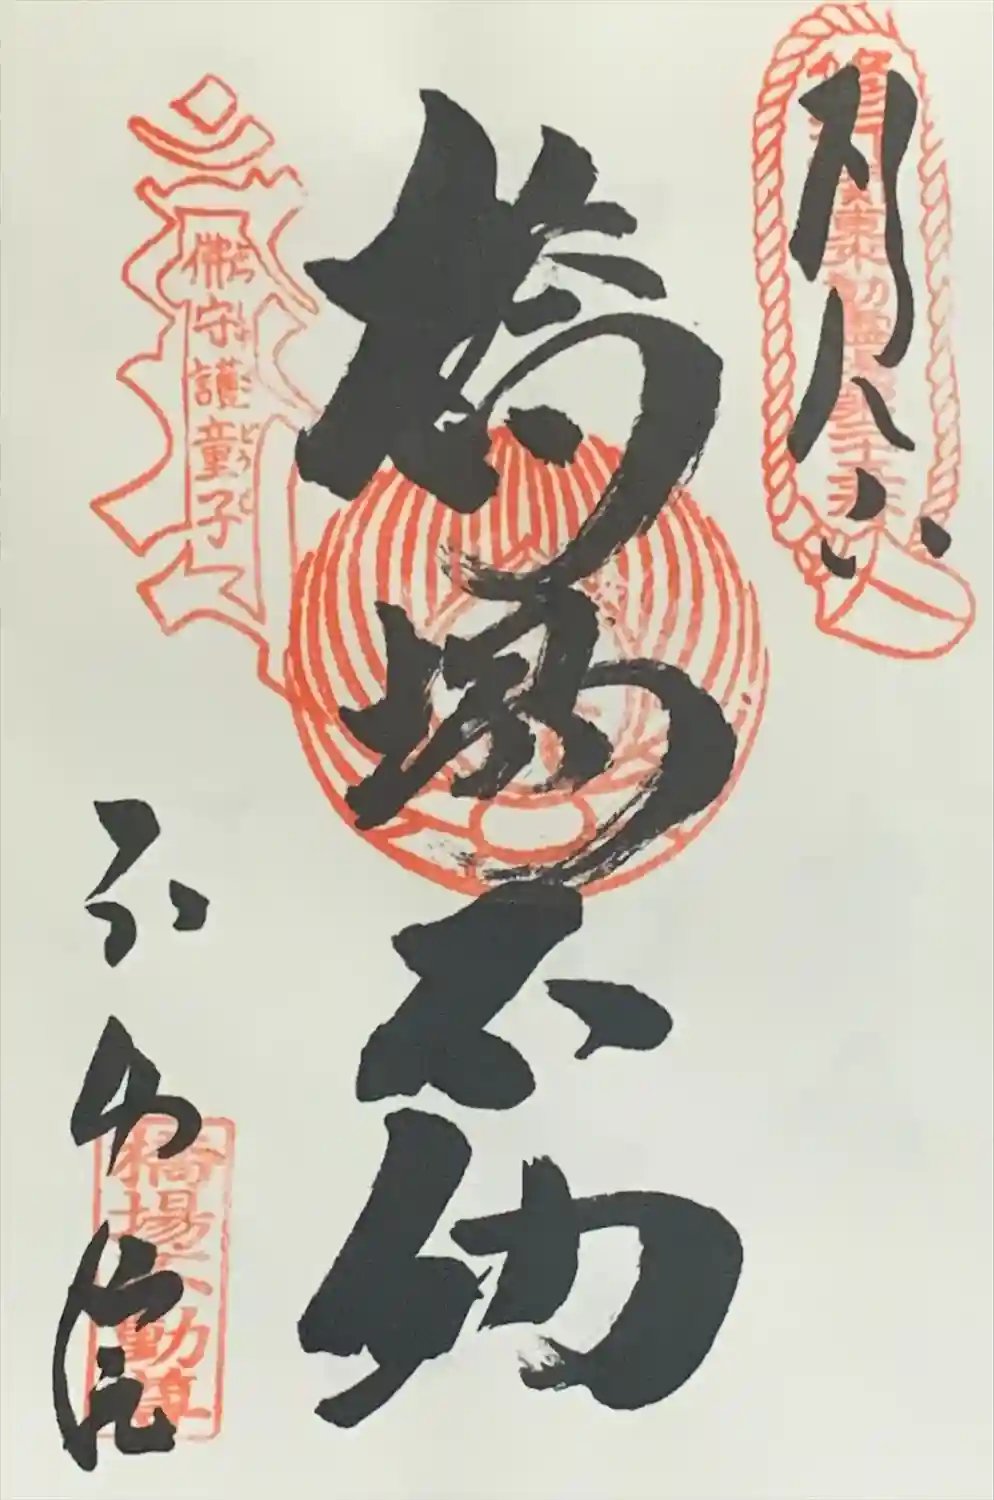 月八日
関東不動霊場第二十三番
橋場不動
佛守護童子
不動院
橋場不動尊